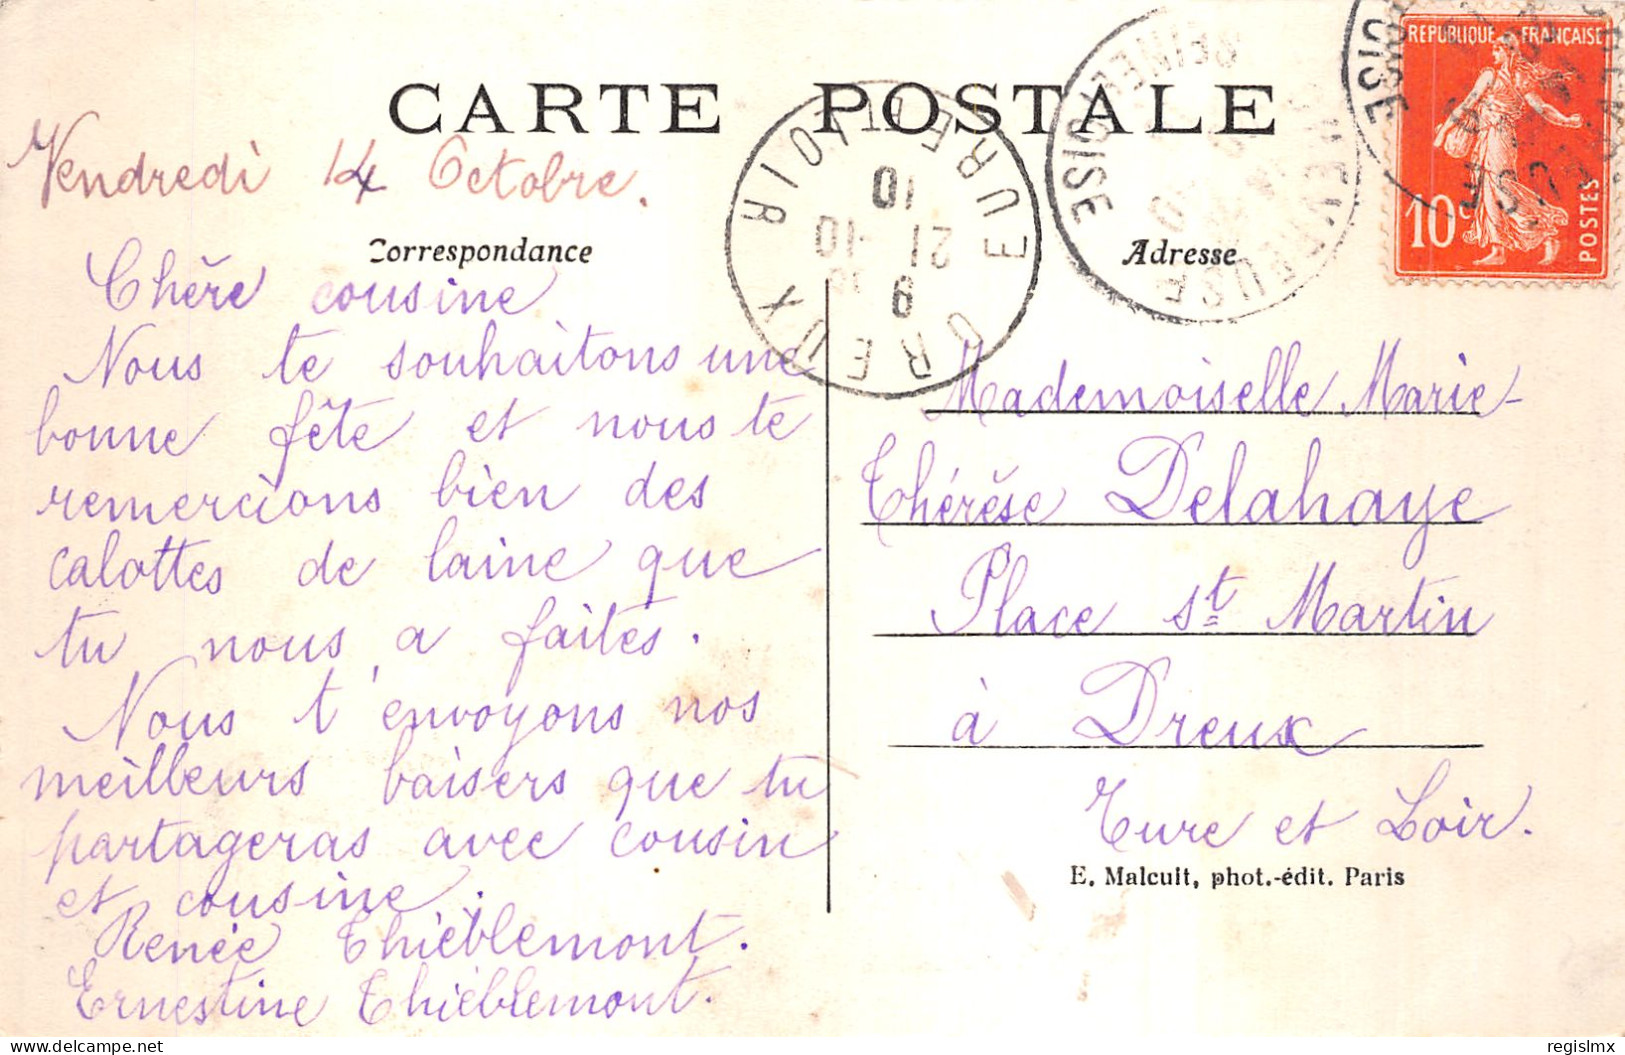 CARTE POSTALE
Vendredi 14 Octobre.
Correspondance
Chère cousine
Nous te souhaitons une
bonne fête et nous te
remercions bien des
calottes de laine que
tu nous a faites.
Nous t'envoyons nos
meilleurs baisers que tu
partageras avec cousin
et cousine.
Renée Thiéblemont.
Ernestine Thiéblemont.
DREUX
EURE ET LOIR
9
21 - 10
10
SEINE ET OISE
Adresse
REPUBLIQUE FRANÇAISE
10c
POSTES
OISE
Mademoiselle Marie-
Thérèse Delahaye
Place St Martin
à Dreux
Eure et Loir.
E. Malcuit, phot.-édit. Paris
regislmx
delcampe.net